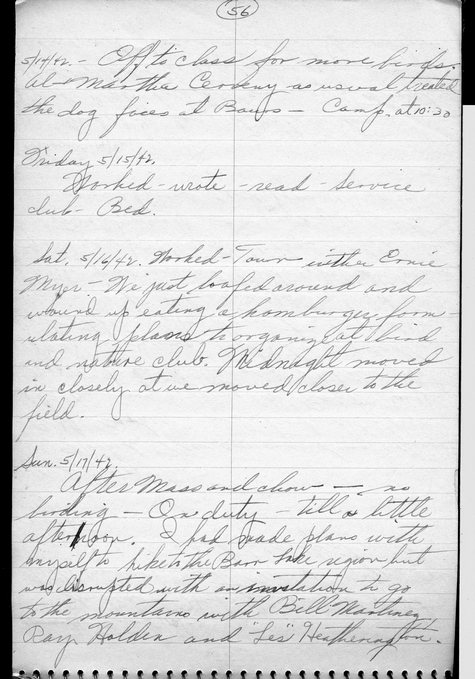 56
5/14/42. - Off to class for more birds.
Al - Martha Cerveny as usual treated
the dog faces at Baurs - Camp. at 10:30
Friday 5/15/42.
Worked - wrote - read - Service
club - Bed.
Sat. 5/16/42. Worked - Town with Ernie
Myer - We just loafed around and
wound up eating a hamburger form-
ulating plans to organize a bird
and nature club. Midnight moved
in closely at we moved closer to the
field.
Sun. 5/17/42.
After Mass and chow - no
birding - On duty - till a little
afternoon. I had made plans with
myself to hike to the Barr Lake region but
was disrupted with an invitation to go
to the mountains with Bill Martinez
Ray Holden and "Les" Heatherington.